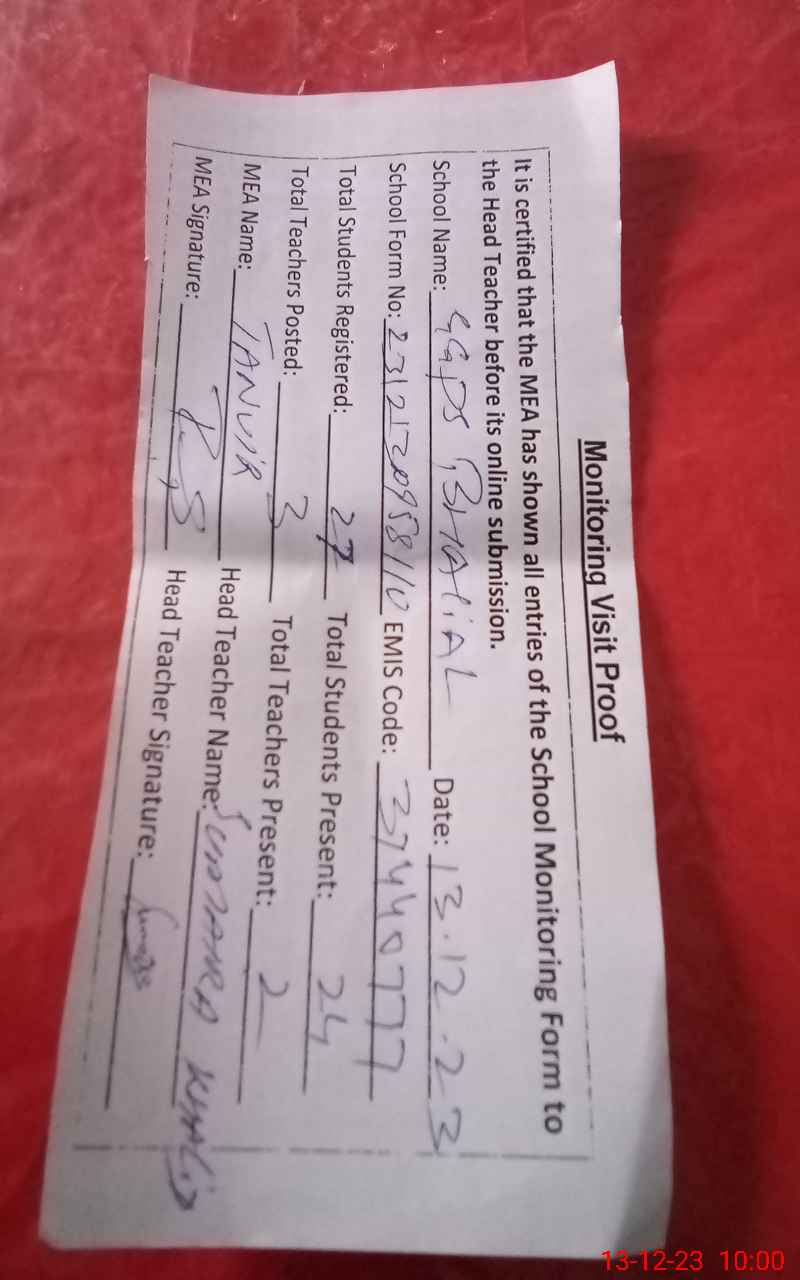 Monitoring Visit Proof
It is certified that the MEA has shown all entries of the School Monitoring Form to
the Head Teacher before its online submission.
School Name: GGPS BHALIAL Date: 13.12.23
School Form No: EMIS Code: 37440777
Total Students Registered: 27 Total Students Present: 24
Total Teachers Posted: 3 Total Teachers Present: 2
MEA Name: TANVIR Head Teacher Name: KHALID
MEA Signature: Head Teacher Signature:
13-12-23 10:00